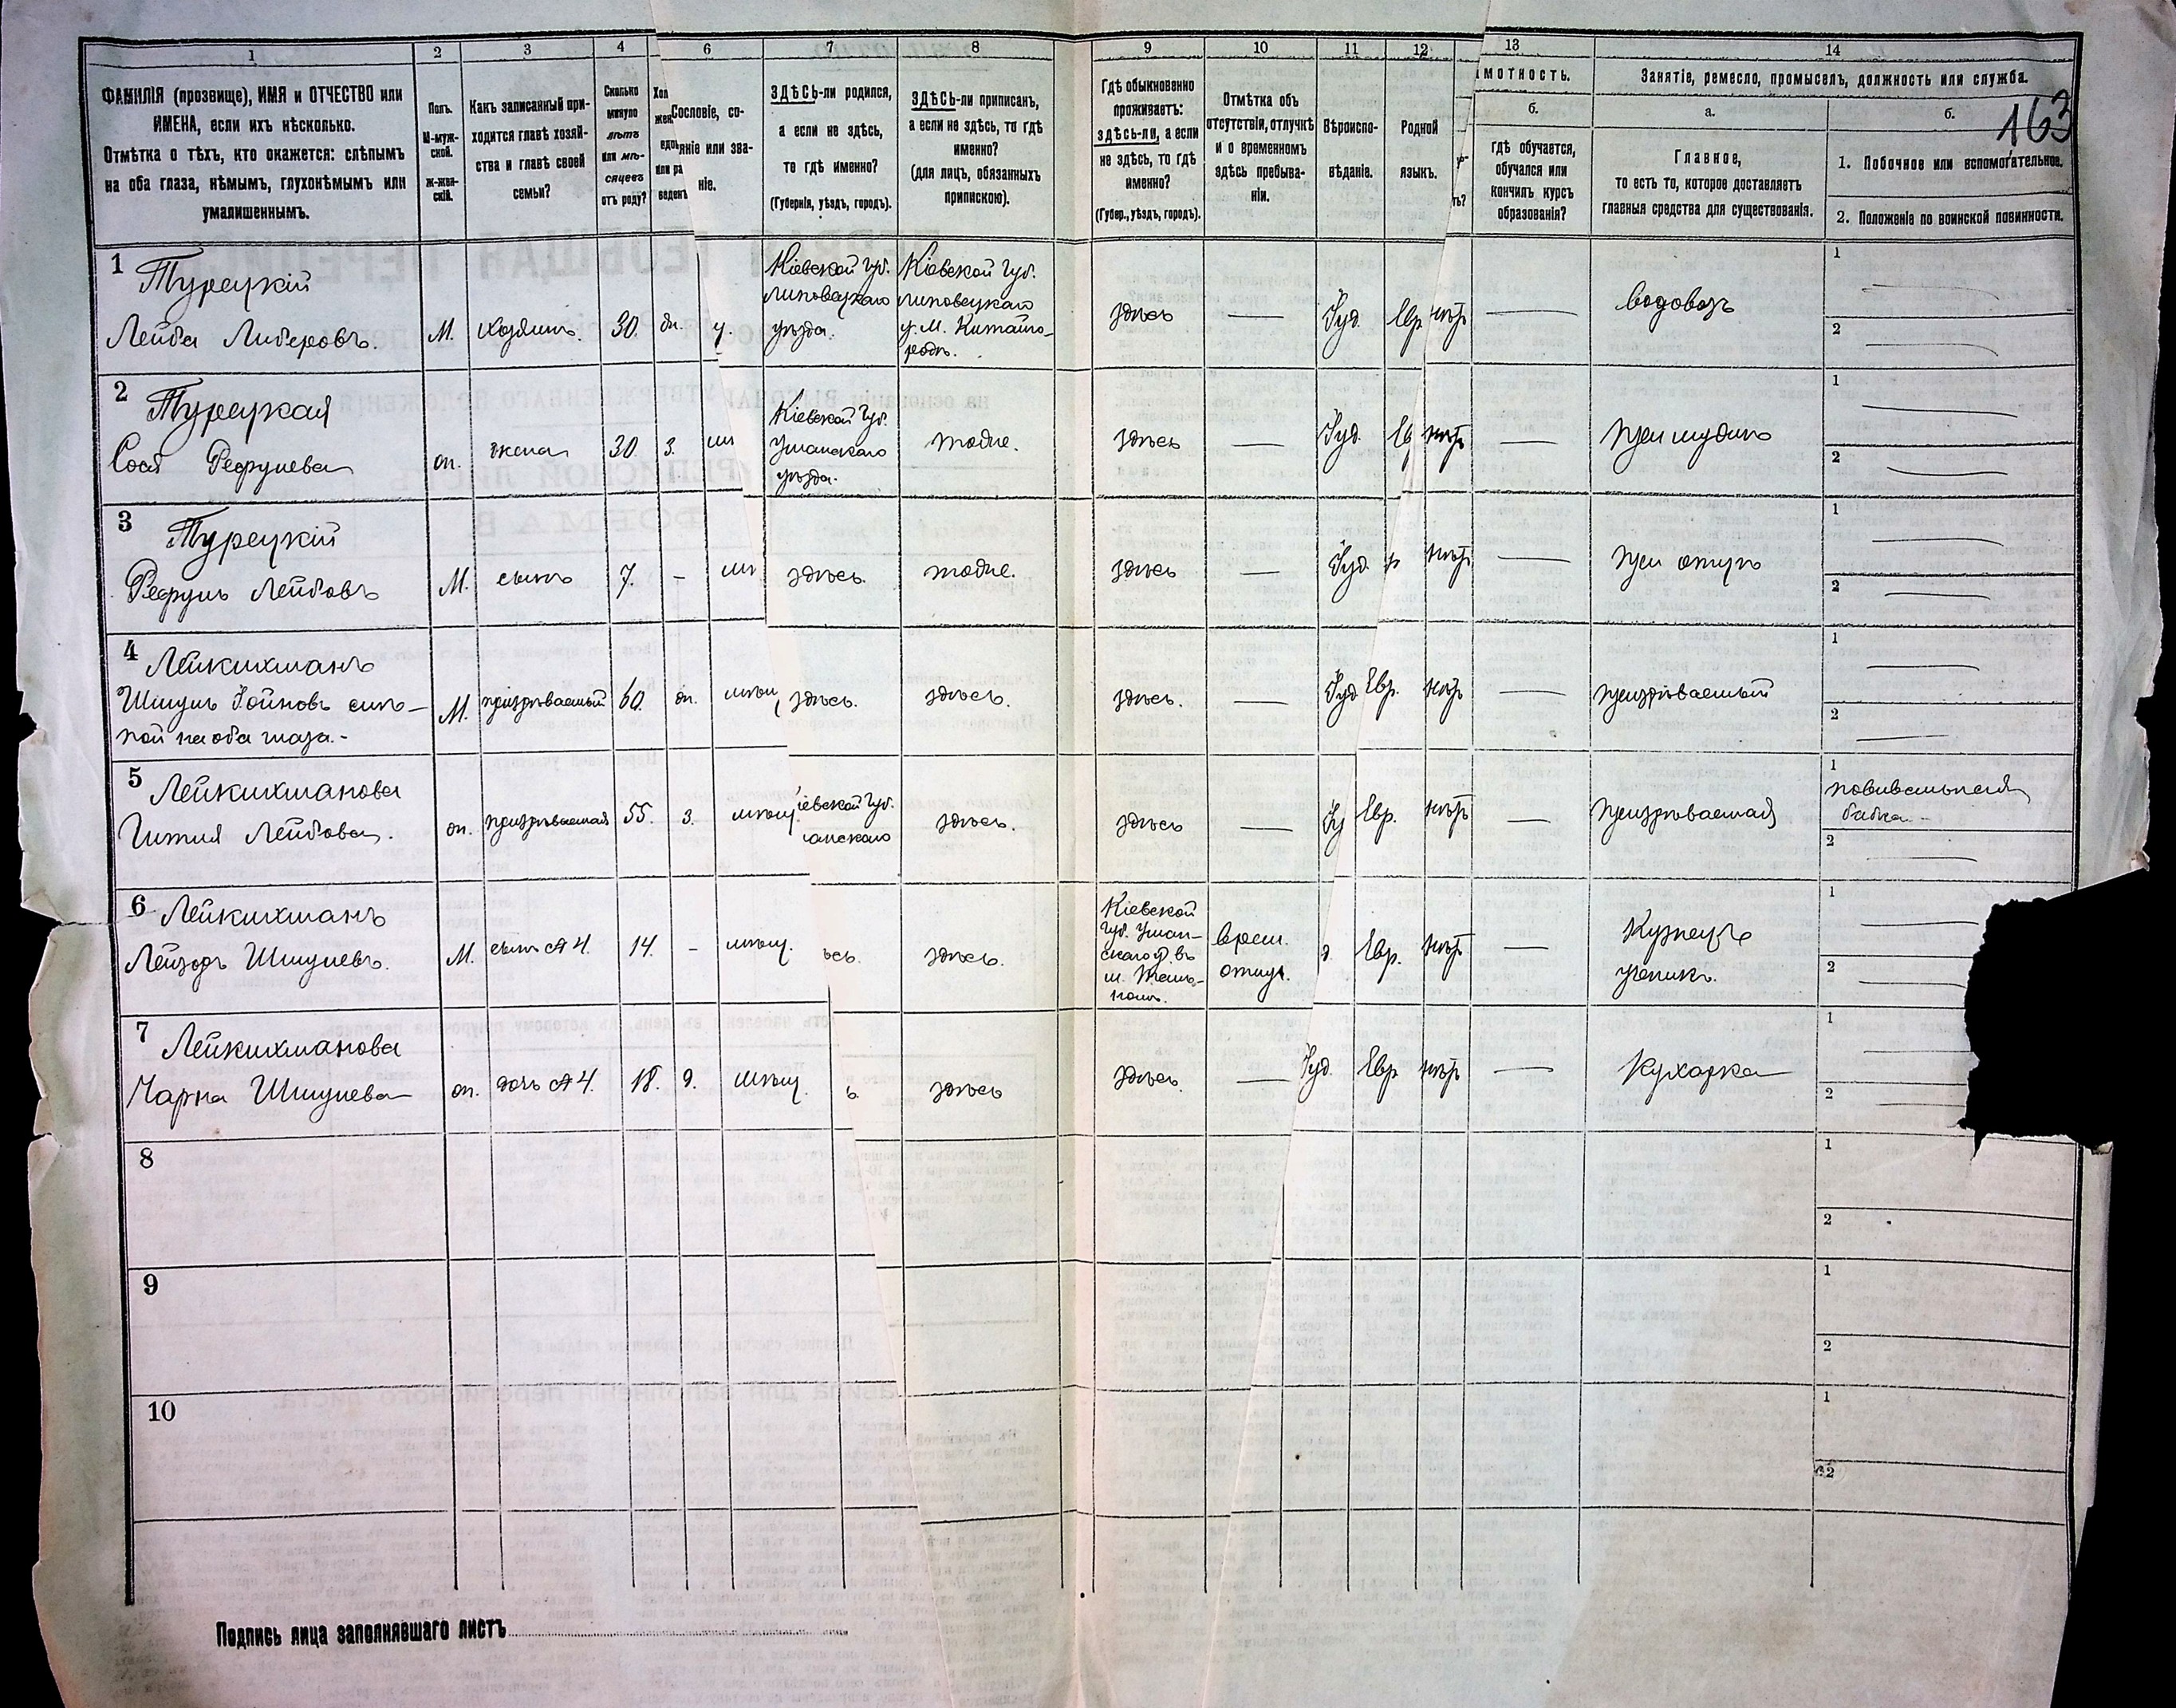 1 2 3 4 6 7 8 9 10 11 12 13 14
163
ФАМИЛІЯ (прозвище), ИМЯ и ОТЧЕСТВО или
ИМЕНА, если ихъ нѣсколько.
Отмѣтка о тѣхъ, кто окажется: слѣпымъ
на оба глаза, нѣмымъ, глухонѣмымъ или
умалишеннымъ.
Полъ.
М-муж-
ской.
Ж-жен-
скій.
Какъ записанный при-
ходится главѣ хозяй-
ства и главѣ своей
семьи?
Сколько
минуло
лѣтъ
или мѣ-
сяцевъ
отъ роду?
Сословіе, со-
яніе или зва-
ніе.
ЗДѢСЬ-ли родился,
а если не здѣсь,
то гдѣ именно?
(Губернія, уѣздъ, городъ).
ЗДѢСЬ-ли приписан,
а если не здѣсь, то гдѣ
именно?
(для лицъ, обязанныхъ
припискою).
Гдѣ обыкновенно
проживаетъ:
здѣсь-ли, а если
не здѣсь, то гдѣ
именно?
(Губер., уѣздъ, городъ).
Отмѣтка объ
отсутствіи, отлучкѣ
и о временномъ
здѣсь пребыва-
ніи.
Вѣроиспо-
вѣданіе.
Родной
языкъ.
МОТНОСТЬ.
б.
гдѣ обучается,
обучался или
кончилъ курсъ
образованія?
Занятіе, ремесло, промыселъ, должность или служба.
а.
Главное,
то есть то, которое доставляетъ
главныя средства для существованія.
б.
1. Побочное или вспомогательное.
2. Положеніе по воинской повинности.
1 Турецкій
Лейба Либеровъ. М. хозяинъ. 30.
Кіевской губ.
Липовецкаго
уѣзда.
Кіевской губ.
Липовецкаго
у. М. Китайго-
родъ.
здѣсь — Іуд. Евр нѣтъ — водовозъ
1
2
2 Турецкая
Сося Рефулева жена 30 з.
Кіевской губ.
Уманскаго
уѣзда.
тоже. здѣсь — Іуд. нѣтъ — при мужѣ
1
2
3 Турецкій
Рефулъ Лейбовъ М. сынъ 7. – здѣсь. тоже. здѣсь — Іуд. нѣтъ — при отцѣ
1
2
4 Лейкихманъ
Шмулъ Іойновъ слѣ-
пой на оба глаза.- М. призрѣваемый 60. здѣсь. здѣсь. здѣсь. — Іуд Евр. нѣтъ — призрѣваемый
1
2
5 Лейкихманова
Гитля Лейбова. призрѣваемая 55. з. мѣщ.
іевской губ.
анскаго
здѣсь. здѣсь — Евр. нѣтъ — призрѣваемая
1 повивальная
бабка -
2
6 Лейкихманъ
Лейзоръ Шмулевъ. М. сынъ № 4. 14. – мѣщ. здѣсь.
Кіевской
губ. Уман-
скаго у. въ
врем.
отлуч.
Евр. нѣтъ —
Кузнецъ
ученикъ.
1
2
7 Лейкихманова
Чарна Шмулева дочь № 4. 18. д. мѣщ. здѣсь здѣсь. — Іуд. Евр нѣтъ — Кухарка
1
2
8
1
2
9
1
2
10
1
2
Подпись лица заполнявшаго листъ